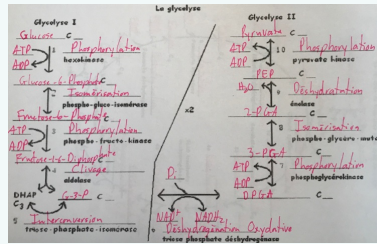 La glycolyse
Glycolyse I
Glucose C_
ATP 1 Phosphorylation
ADP hexokinase
Glucose-6-Phosphate C_
2 Isomérisation
phospho-gluco-isomérase
Fructose-6-Phosphate C_
ATP 3 Phosphorylation
ADP phospho-fructo-kinase
Fructose-1-6-Diphosphate
4 Clivage
aldolase
DHAP G-3-P C_
C3
5 Interconversion
triose-phosphate-isomérase
x2
Pi
NAD+ NADH2
6 Déshydrogénation Oxydative
triose phosphate déshydrogénase
Glycolyse II
Pyruvate C_
ATP 10 Phosphorylation
ADP pyruvate kinase
PEP C_
H2O 9 Déshydratation
énolase
2-PGA C_
8 Isomérisation
phospho-glycéro-mutase
3-PGA C_
ATP 7 Phosphorylation
ADP phosphoglycérokinase
DPGA C_